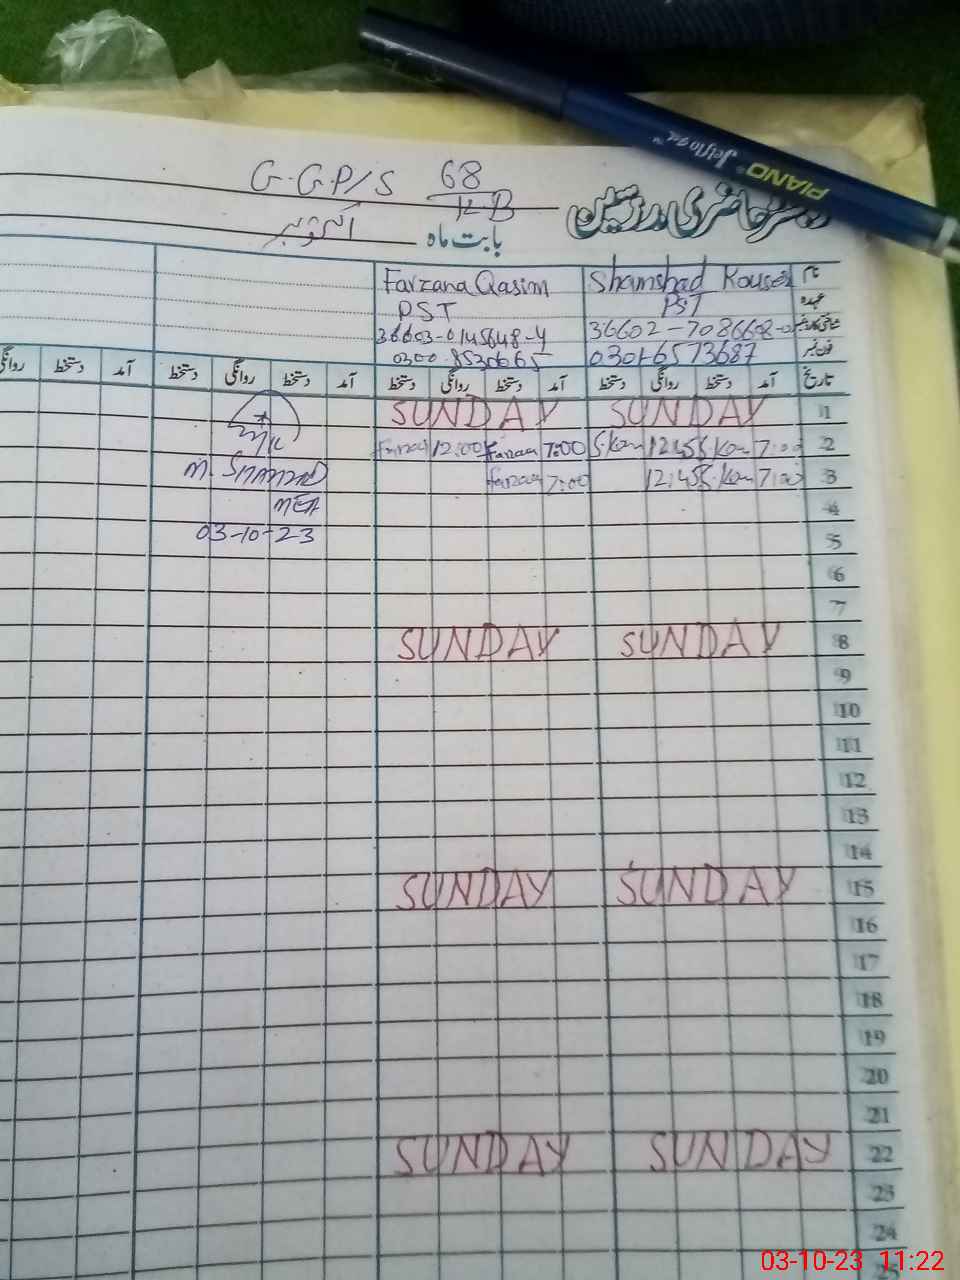 PIANO Jetflo gel
G.G.P/S 68/KB
رجسٹر حاضری مدرسین
بابت ماہ اکتوبر
نام Shamshad Kouser Farzana Qasim
عہدہ PST PST
شناختی کارڈ نمبر 36602-7086608- 36603-0145648-4
فون نمبر 0301-6573687 0300-8530665
تاریخ آمد دستخط روانگی دستخط آمد دستخط روانگی دستخط آمد دستخط روانگی دستخط آمد دستخط روانگی
1 SUNDAY SUNDAY
2 7:00 S.Kou 12:45 S.Kou 7:00 Farzan 12:00 Farzan
3 7:00 S.Kou 12:45 7:00 Farzan
M. SHAHZAD
4 MEA
5 03-10-23
6
7
8 SUNDAY SUNDAY
9
10
11
12
13
14
15 SUNDAY SUNDAY
16
17
18
19
20
21
22 SUNDAY SUNDAY
23
24
25
03-10-23 11:22